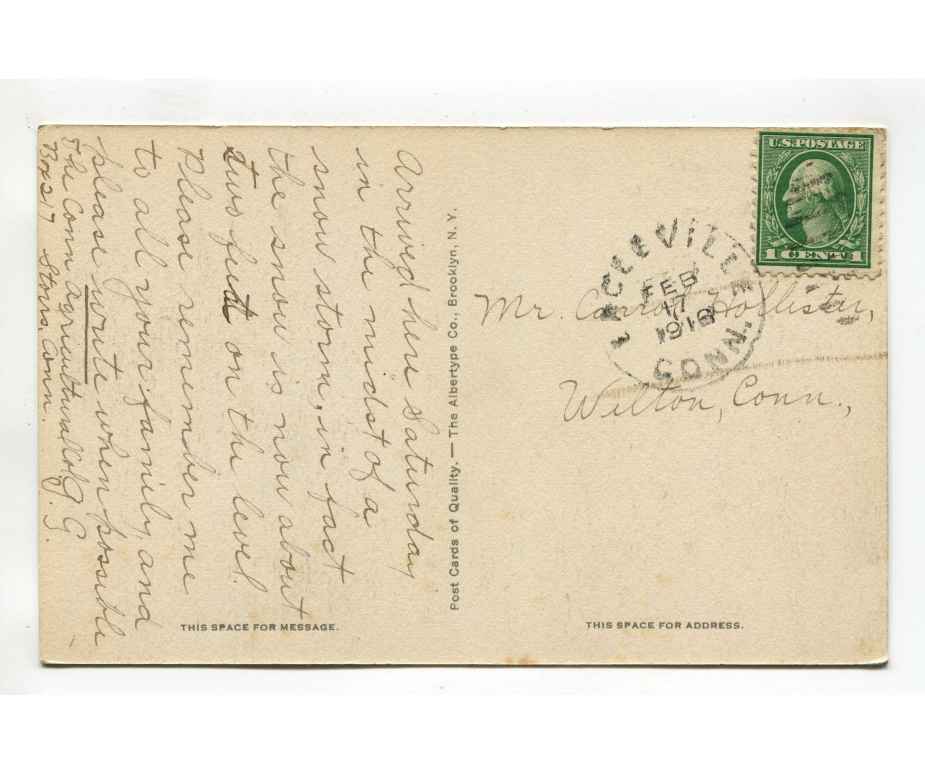 Arrived here Saturday
in the midst of a
snow storm, in fact
the snow is now about
two feet on the level
Please remember me
to all your family, and
please write when possible
The Conn Agricultural Col
Box 17 Storrs, Conn. G. S.
Post Cards of Quality. — The Albertype Co., Brooklyn, N. Y.
THIS SPACE FOR MESSAGE.
U.S. POSTAGE
1 CENT 1
EAGLEVILLE
FEB
17
CONN.
Mr. Carroll Hollister,
Wilton, Conn.,
THIS SPACE FOR ADDRESS.